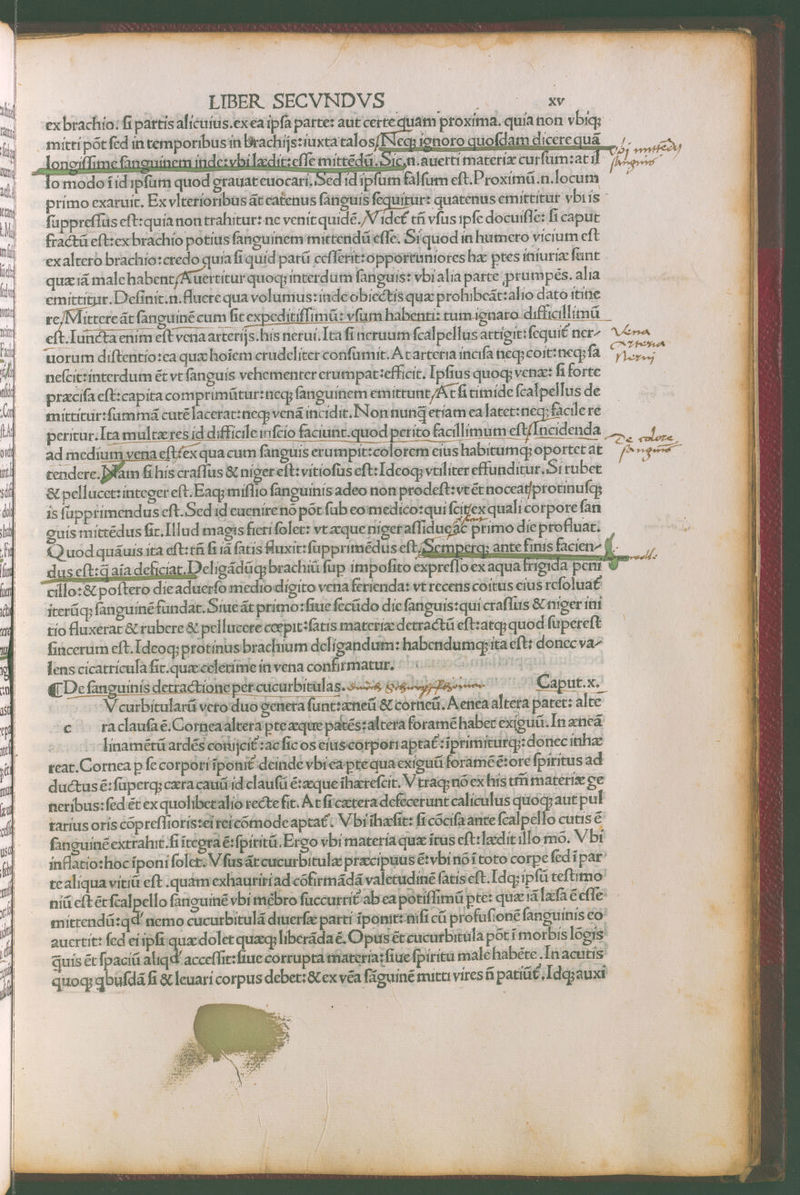 LIBER SECVNDVS xv
ex brachio: si partis alicuius. ex ea ipsa parte: aut certe quam proxima. quia non vbiq;
mitti pōt sed in temporibus in brachijs: iuxta talos/ Neq; ignoro quosdam dicere quā
longissime sanguinem inde: vbi lædit: esse mittēdū. Sic .n. auerti materiæ cursum: at il
lo modo ī id ipsum quod grauat euocari. Sed id ipsum falsum est. Proximū .n. locum
primo exaruit. Ex vlterioribus āt eatenus sanguis sequitur: quatenus emittitur vbi is
suppressus est: quia non trahitur: ne venit quidē. Videt tn̄ vsus ipse docuisse: si caput
fractū est: ex brachio potius sanguinem mittendū esse. Si quod in humero vicium est
ex altero brachio: credo quia si quid parū cesserit: opportuniores hæ ptes iniuriæ sunt
quæ iā male habent/ Auertitur quoq; interdum sanguis: vbi alia parte prumpēs. alia
emittitur. Definit .n. fluere qua volumus: inde obiectis quæ prohibeāt: alio dato itine
re/ Mittere āt sanguinē cum sit expeditissimū: vsum habenti: tum ignaro difficillimū
est. Iuncta enim est vena arterijs. his nerui. Ita si neruum scalpellus attigit: sequit ner-
uorum distentio: ea quæ hoīem crudeliter consumit. At arteria incisa neq; coit: neq; sa
nescit: interdum ēt vt sanguis vehementer erumpat: efficit. Ipsius quoq; venæ: si forte
præcisa est: capita comprimūtur: neq; sanguinem emittunt/ At si timide scalpellus de
mittitur: summā cutē lacerat: neq; venā incidit. Non nunq̄ etiam ea latet: neq; facile re
peritur. Ita multæ res id difficile inscio faciunt. quod perito facillimum est/ Incidenda
ad medium vena est/ ex qua cum sanguis erumpit: colorem eius habitumq; oportet at
tendere. Nam si his crassus & niger est: vitiosus est: Ideoq; vtiliter effunditur. Si rubet
& pellucet: integer est. Eaq; missio sanguinis adeo non prodest: vt ēt noceat/ protinusq;
is supprimendus est. Sed id euenire nō pōt sub eo medico: qui scit/ ex quali corpore san
guis mittēdus sit. Illud magis fieri solet: vt æque niger assidue ac primo die profluat.
Quod quāuis ita est: tn̄ si iā satis fluxit: supprimēdus est/ Semperq; ante finis facien-
dus est: q̄ aīa deficiat. Deligādūq; brachiū sup imposito expresso ex aqua frigida peni
cillo: & postero die aduerso medio digito vena ferienda: vt recens coitus eius resoluat
iterūq; sanguinē fundat. Siue āt primo: siue secūdo die sanguis: qui crassus & niger ini
tio fluxerat & rubere & pellucere cœpit: satis materiæ detractū est: atq; quod superest
sincerum est. Ideoq; protinus brachium deligandum: habendumq; ita est: donec va-
lens cicatricula sit. quæ celerime in vena confirmatur.
¶ De sanguinis detractione per cucurbitulas. Caput. x.
Vcurbitularū vero duo genera sunt: æneū & corneū. Aenea altera patet: alte
c ra clausa ē. Cornea altera pte æque patēs: altera foramē habet exiguū. In æneā
linamētū ardēs coniicit: ac sic os eius corpori aptat: īprimiturq; donec inhæ
reat. Cornea p se corpori īponit deinde vbi ea pte qua exiguū foramē ē: ore spiritus ad
ductus ē: superq; cæra cauū id clausū ē: æque īhærescit. Vtraq; nō ex his tm̄ materiæ ge
neribus: sed ēt ex quolibet alio recte fit. At si cætera defecerunt caliculus quoq; aut pul
tarius oris cōpressioris: ei rei cōmode aptat. Vbi īhæsit: si cōcisa ante scalpello cutis ē
sanguinē extrahit. si ītegra ē: spiritū. Ergo vbi materia quæ ītus est: lædit illo mō. Vbi
inflatio: hoc īponi solet. Vsus āt cucurbitulæ præcipuus ē: vbi nō ī toto corpe sed ī par
te aliqua vitiū est. quam exhauriri ad cōfirmādā valetudinē satis est. Idq; ipsū testimo
niū est ēt scalpello sanguinē vbi mēbro succurrit ab ea potissimū pte: quæ iā læsa ē esse
mittendū: qd' nemo cucurbitulā diuersæ parti īponit: nisi cū profusionē sanguinis eo
auertit: sed ei ipsi quæ dolet quæq; liberāda ē. Opus ēt cucurbitula pōt ī morbis lōgis
q̄uis ēt spaciū aliqd' accessit: siue corrupta materia: siue spiritu male habēte. In acutis
quoq; qbusdā si & leuari corpus debet: & ex vēa sāguinē mitti vires n̄ patiūt. Idq; auxi